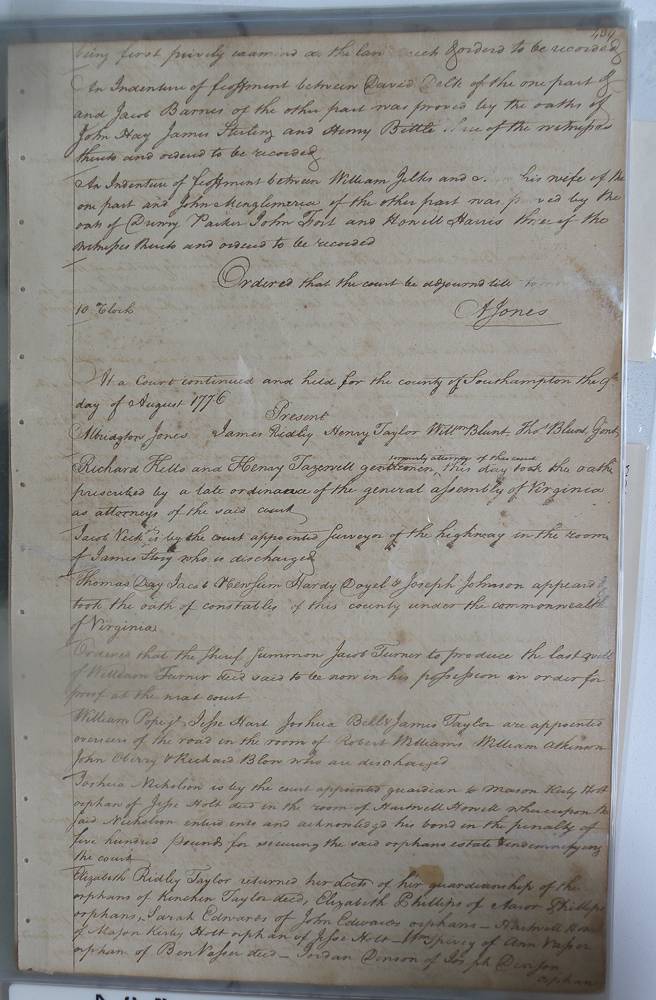 being first privily examined as the law ordered to be recorded
An Indenture of feoffment between David Delk of the one part &
and Jacob Barnes of the other part was proved by the oaths of
John Hay James Sterling and Henry Bittle of the witnesses
thereto and ordered to be recorded
An Indenture of feoffment between William Jelks and his wife of the
one part and John of the other part was proved by the
oath of Drury Parker John Fort and Howell Harris three of the
witnesses thereto and ordered to be recorded
Ordered that the court be adjournd till
10 Clock
AJones
At a Court continued and held for the county of Southampton the 9th
day of August 1776
Present
Albridgton Jones James Ridley Henry Taylor Willm Blunt Thos Blunt, Gent
formerly attorneys of this court
Richard Kello and Henry Tazewell gentlemen, this day took the oath
prescribed by a late ordinance of the general assembly of Virginia
as attorneys of the said court
Jacob is by the court appointed Surveyor of the highway in the room
of James Story who is discharged
Thomas Day Jacob Newsum Hardy Doyel & Joseph Johnson appeard &
took the oath of constables of this county under the commonwealth
of Virginia
Ordered that the Sherif Summon Jacob Turner to produce the last will
of William Turner decd said to be now in his possession in order for
proof at the next court
William Pope Jesse Hart Joshua Bell & James Taylor are appointed
overseers of the road in the room of Robert Williams William Atkinson
John Oberry & Richard Blow who are discharged
Joshua Nicholson is by the court appointed guardian to Mason Kerby Holt
orphan of Jesse Holt decd in the room of Hartwell Howell whereupon the
said Nicholson enterd into and acknowledgd his bond in the penalty of
five hundred pounds for securing the said orphans estate & indemnifying
the court
Elizabeth Ridley Taylor returned her accts of her guardianship of the
orphans of Kinchen Taylor decd, Elizabeth Phillips of Aaron Phillips
orphans, Sarah Edwards of John Edwards orphans — Hartwell
of Mason Kerby Holt orphan of Jesse Holt — Wm Spivey of Ann Vasser
orphan of Ben Vasser decd — Jordan Denson of Joseph Denson
orphan